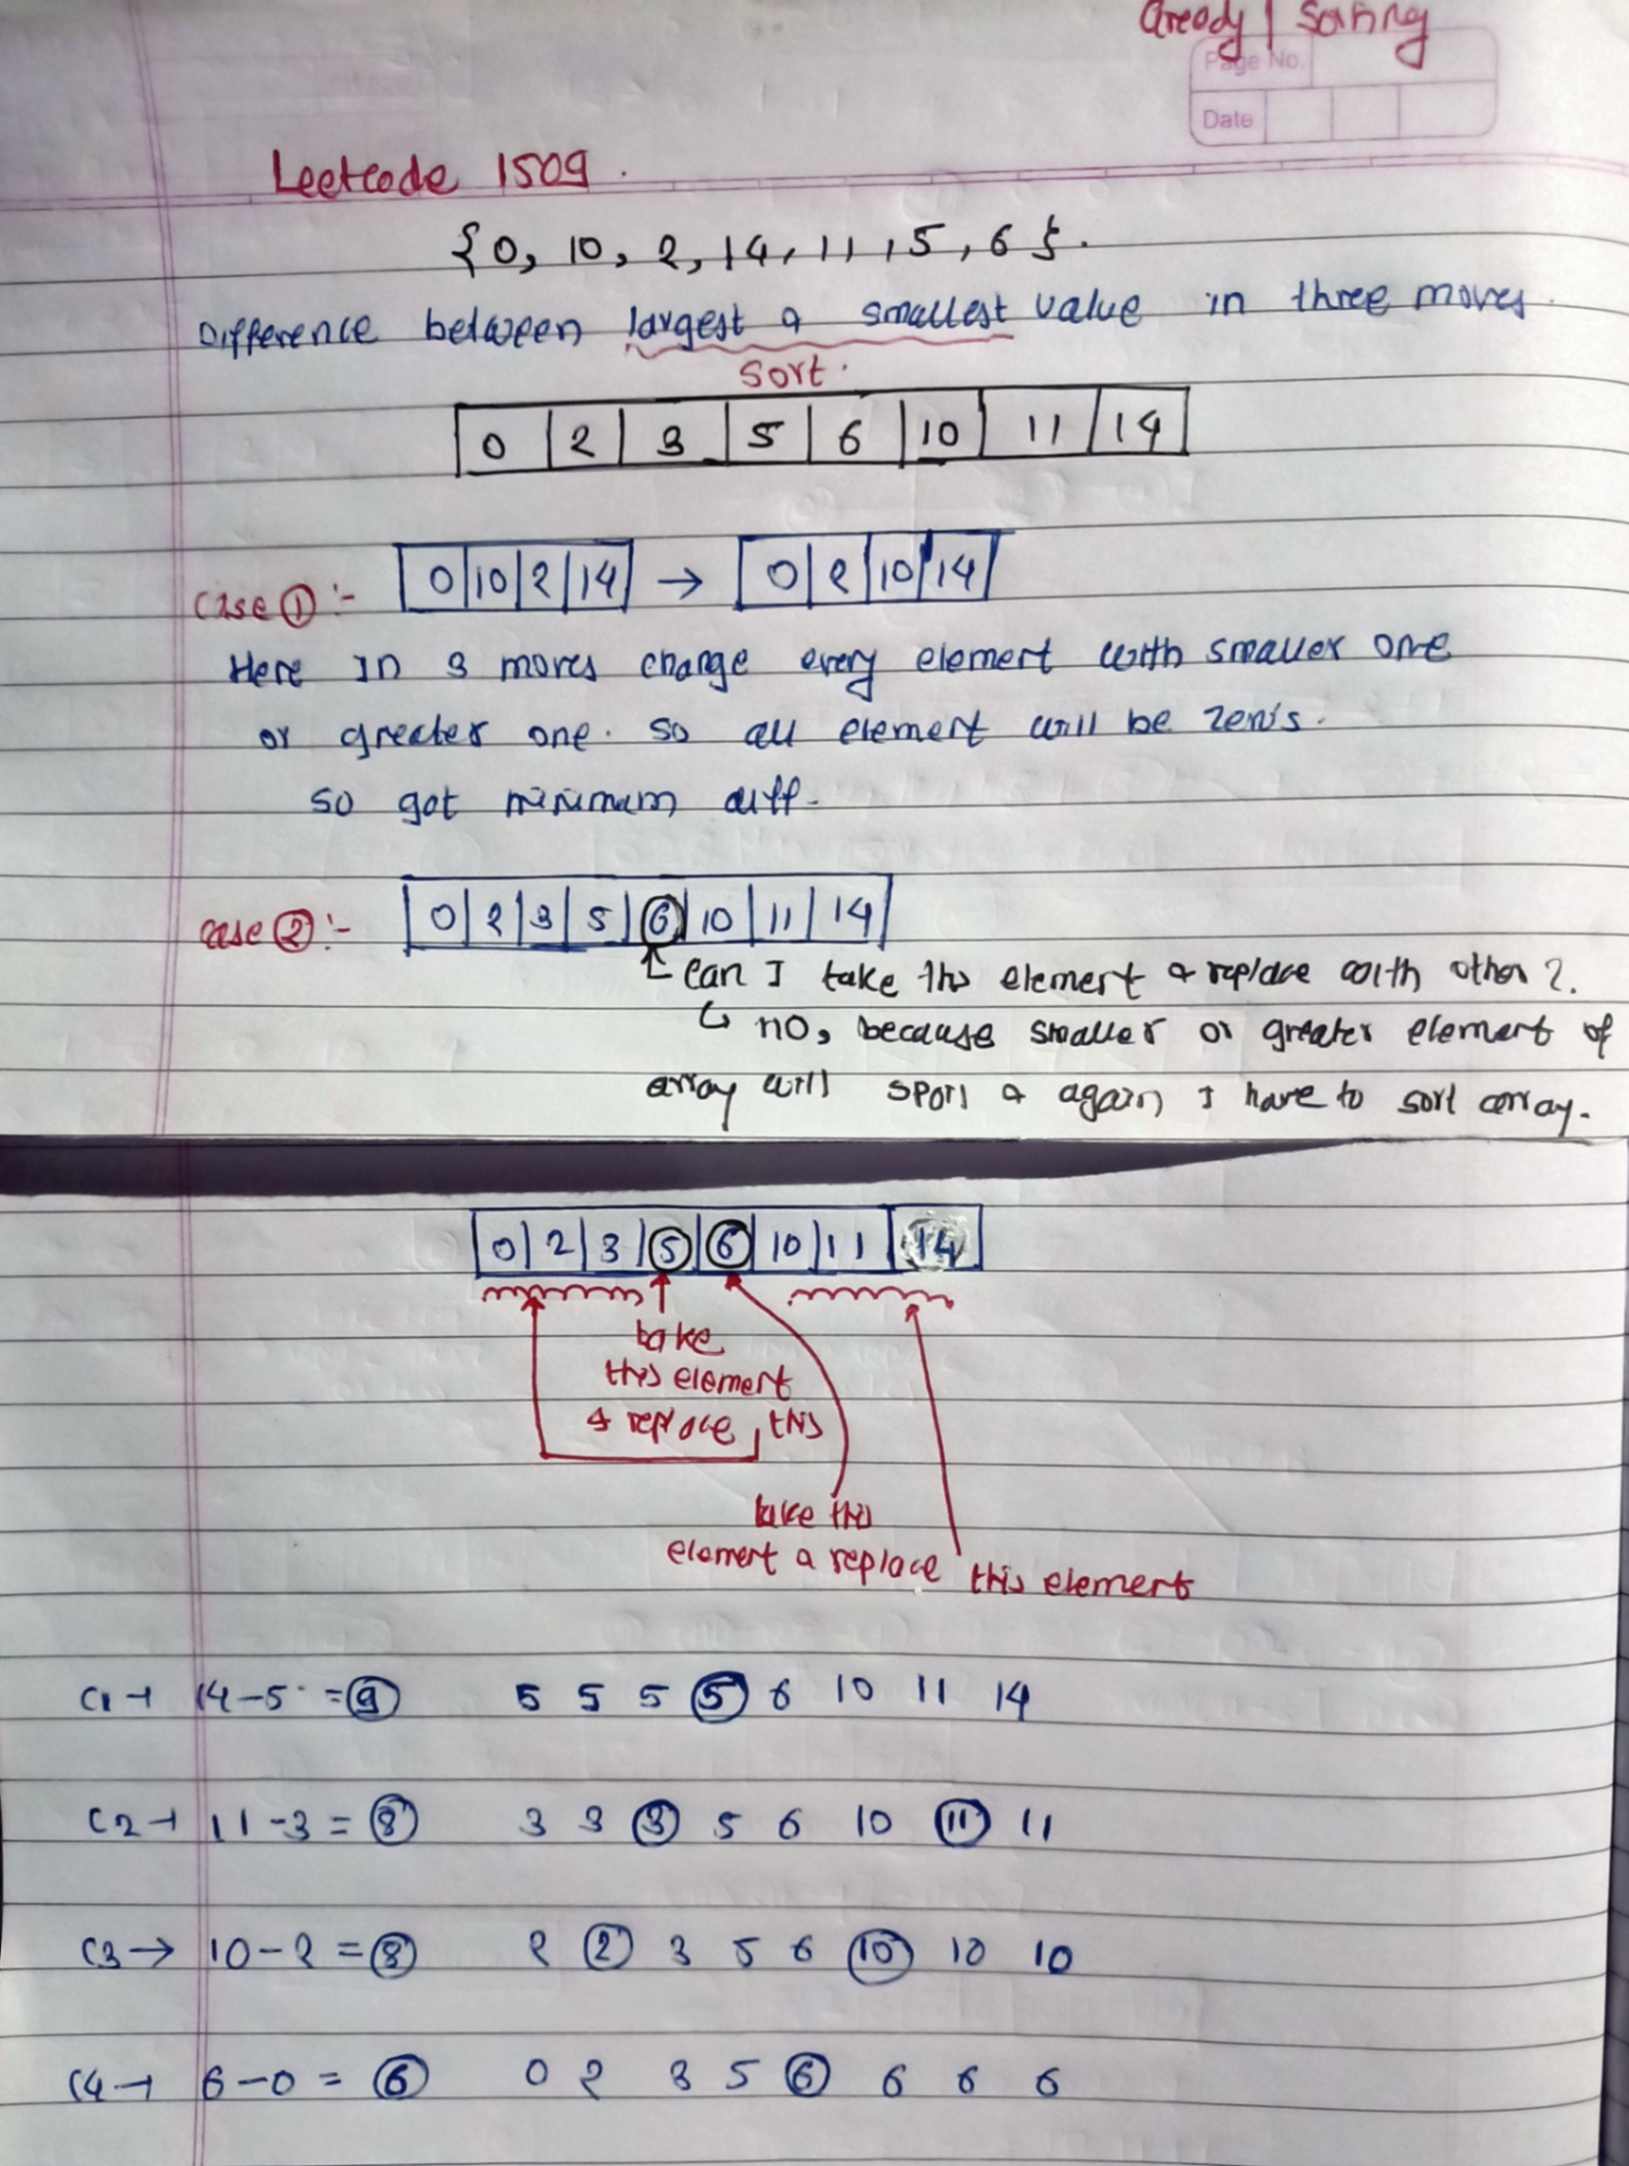 Greedy | Sorting
Page No.
Date
Leetcode 1509.
{0, 10, 2, 14, 11, 5, 6}.
Difference between largest & smallest value in three moves.
Sort.
0 | 2 | 3 | 5 | 6 | 10 | 11 | 14
case ① :- 0 | 10 | 2 | 14 → 0 | 2 | 10 | 14
Here In 3 moves change every element with smaller one
or greater one. so all element will be zero's.
so got minimum diff.
case ② :- 0 | 2 | 3 | 5 | 6 | 10 | 11 | 14
can I take this element & replace with other ?.
↳ no, because smaller or greater element of
array will spoil & again I have to sort array.
0 | 2 | 3 | 5 | 6 | 10 | 11 | 14
take
this element
& replace this
take this
element & replace this element
C1 → 14-5 = 9 5 5 5 5 6 10 11 14
C2 → 11-3 = 8 3 3 3 5 6 10 11 11
C3 → 10-2 = 8 2 2 3 5 6 10 10 10
C4 → 6-0 = 6 0 2 3 5 6 6 6 6